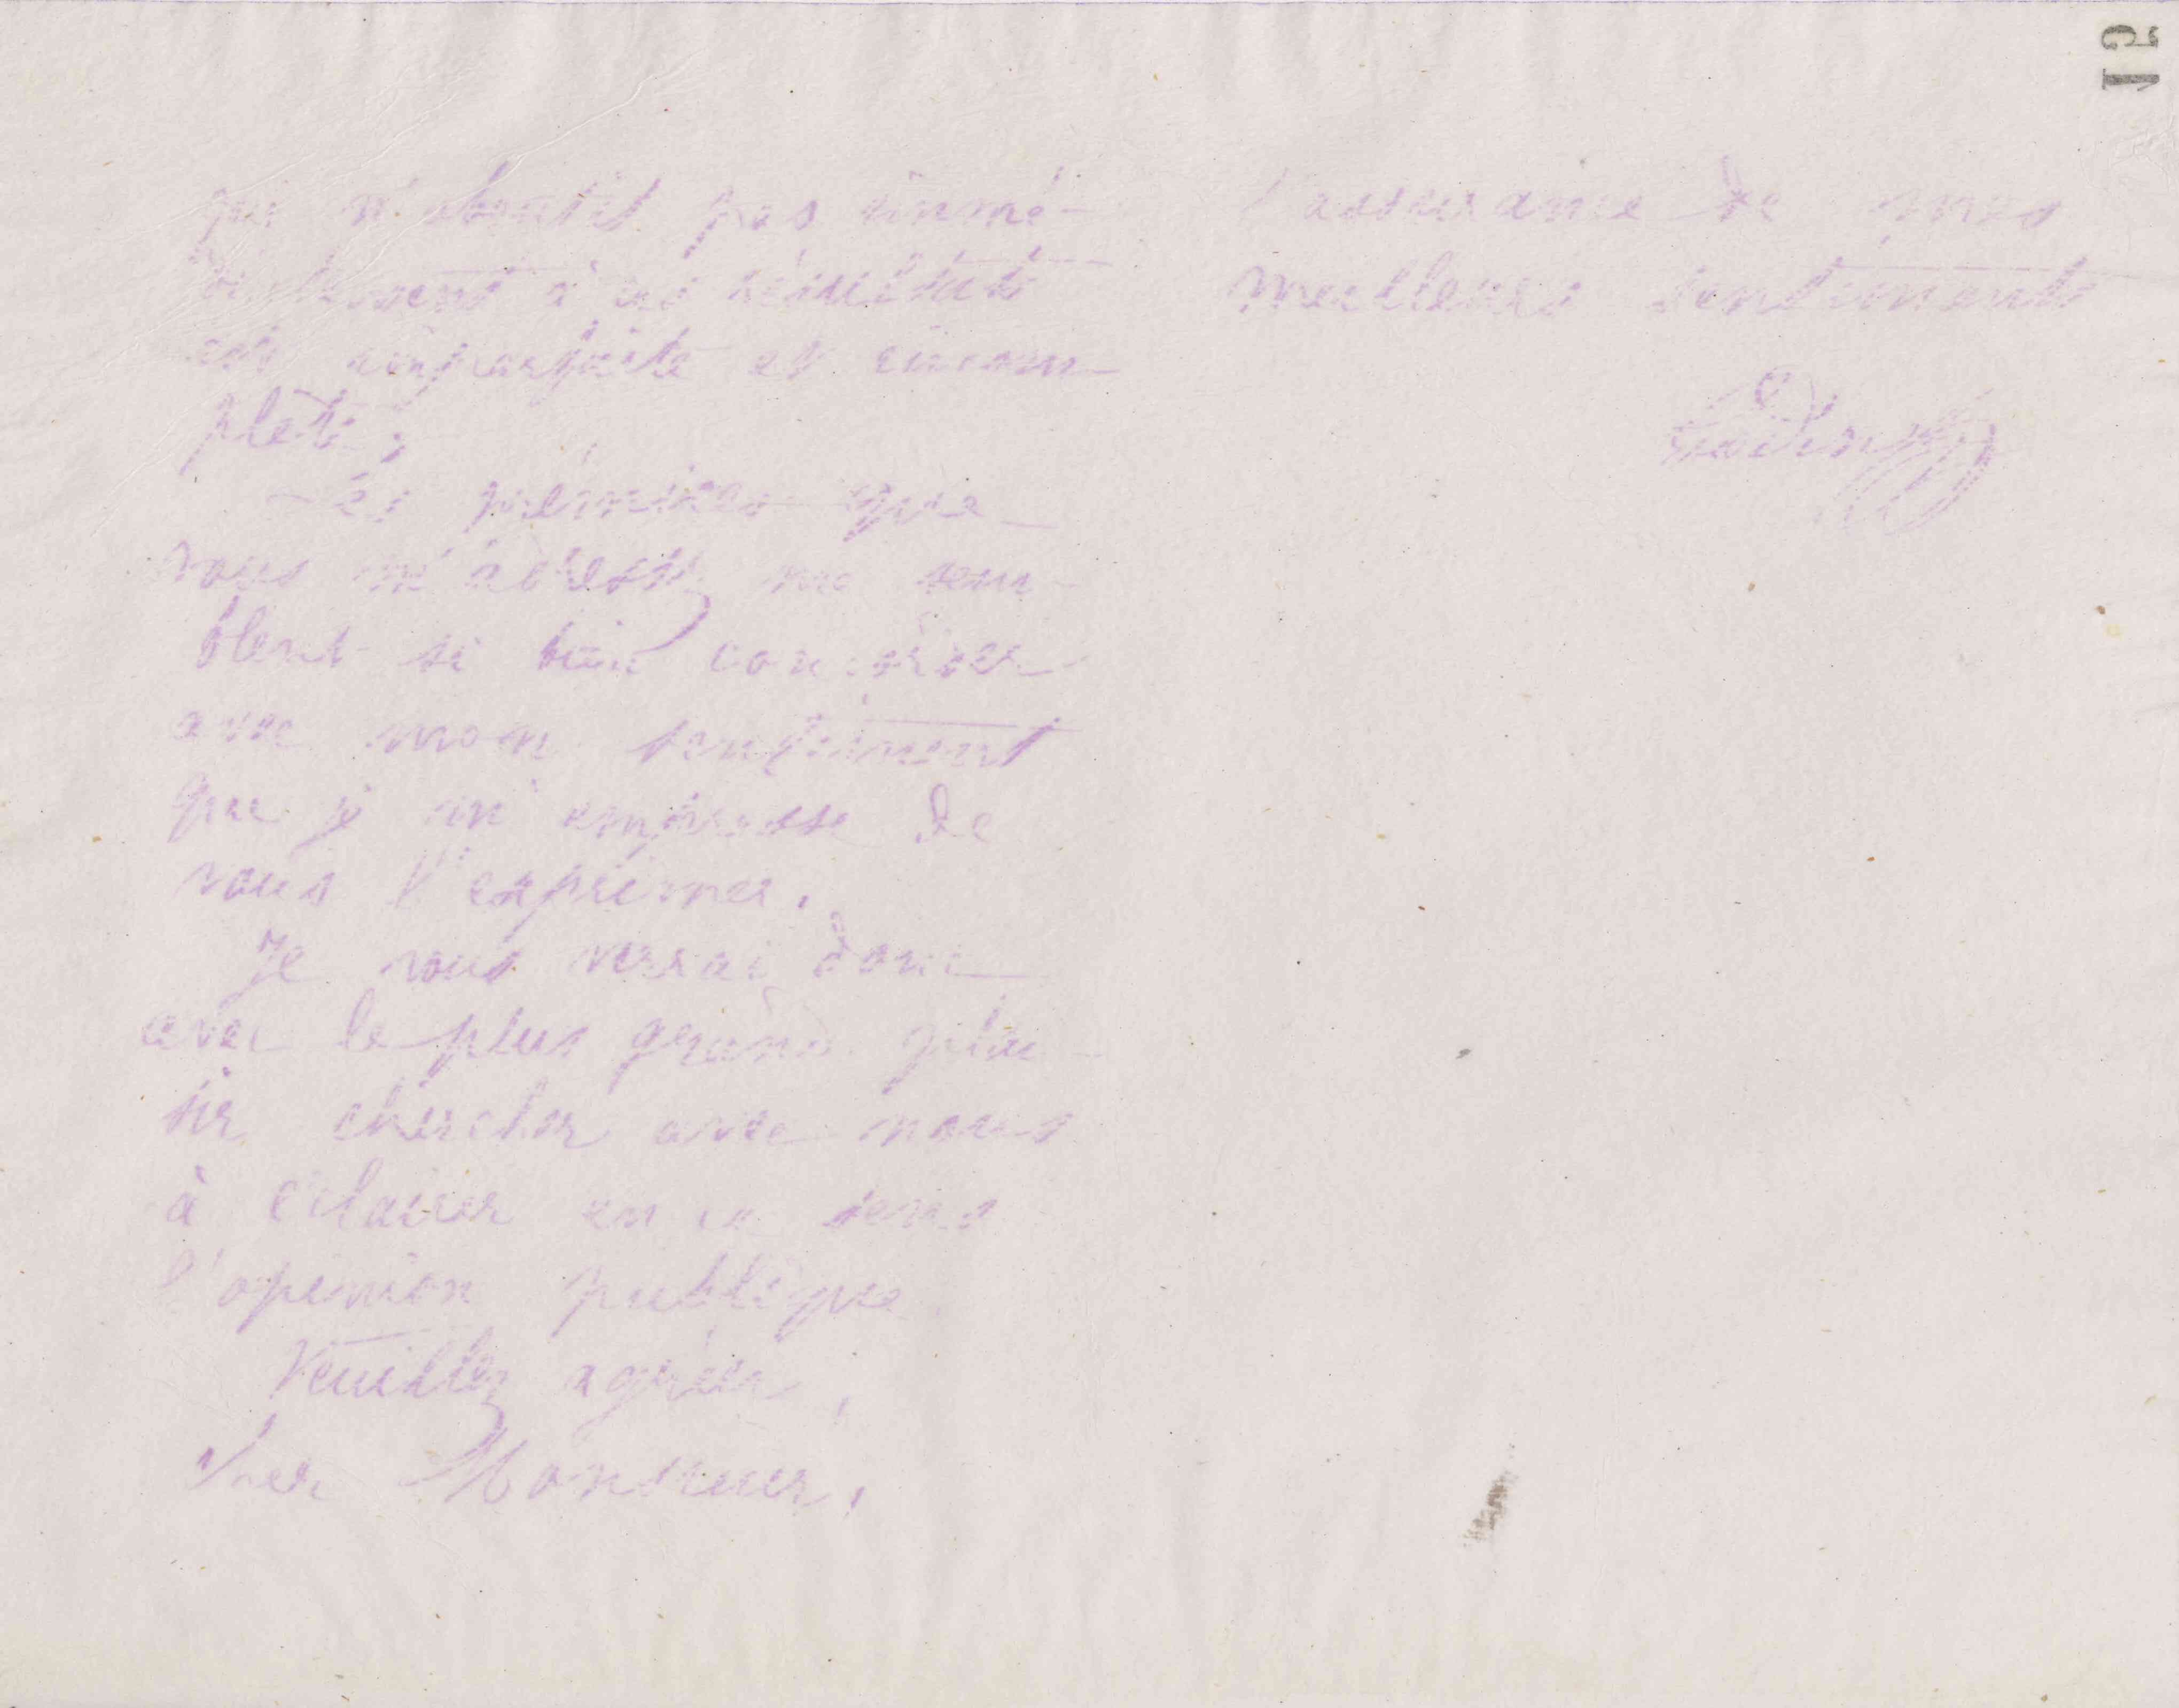 qui n'aboutit pas immé-
diatement à ces résultats
est imparfaite et incom-
plète.
Les prémices que
vous m'adressez me sem-
blent si bien concorder
avec mon sentiment
que je m'empresse de
vous l'exprimer.
Je vous verrai donc
avec le plus grand plai-
sir chercher avec nous
à éclairer en ce sens
l'opinion publique
Veuillez agréer,
Cher Monsieur,
l'assurance de mes
meilleurs sentiments
Godin
51